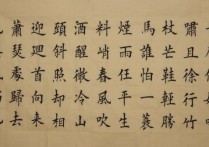 嘯且徐行竹
杖芒鞋輕勝
馬誰怕一蓑
煙雨任平生
料峭春風吹
酒醒微冷山
頭斜照却相
迎迴首向來
蕭瑟處歸去